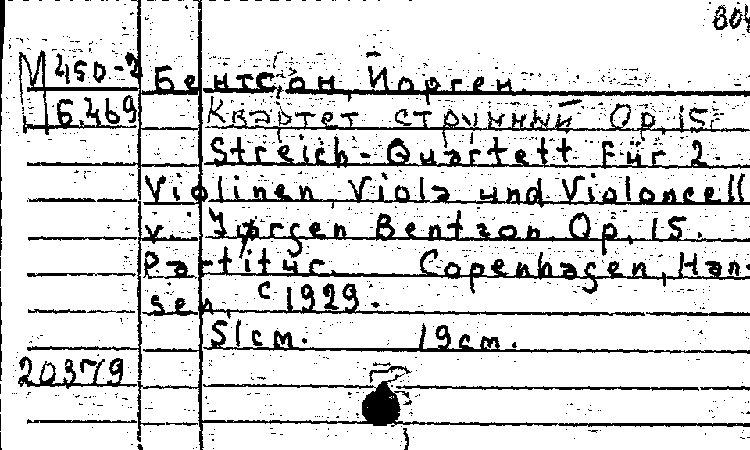 804
М 450-2
Бентсон, Йорген.
Б.469
Квартет струнный Op.15.
Streich-Quartett für 2.
Violinen, Viola und Violoncell
v. Jørgen Bentzon Op. 15.
Partitur. Copenhagen, Han-
sen, c1929.
51cm. 19cm.
20379